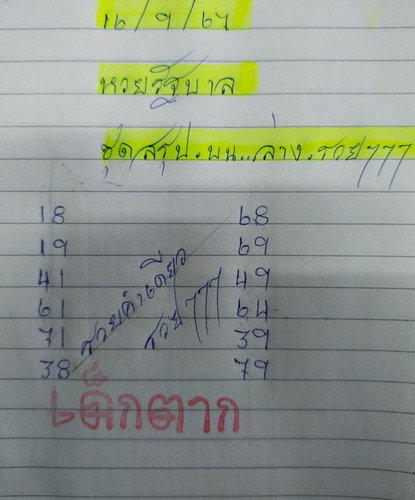 16/9/67
หวยรัฐบาล
ชุดสรุป.บน..ล่าง.รวย777
18 68
19 69
41 49
61 64
71 39
38 79
รวยคำเดียว
รวย777
เด็กตาก